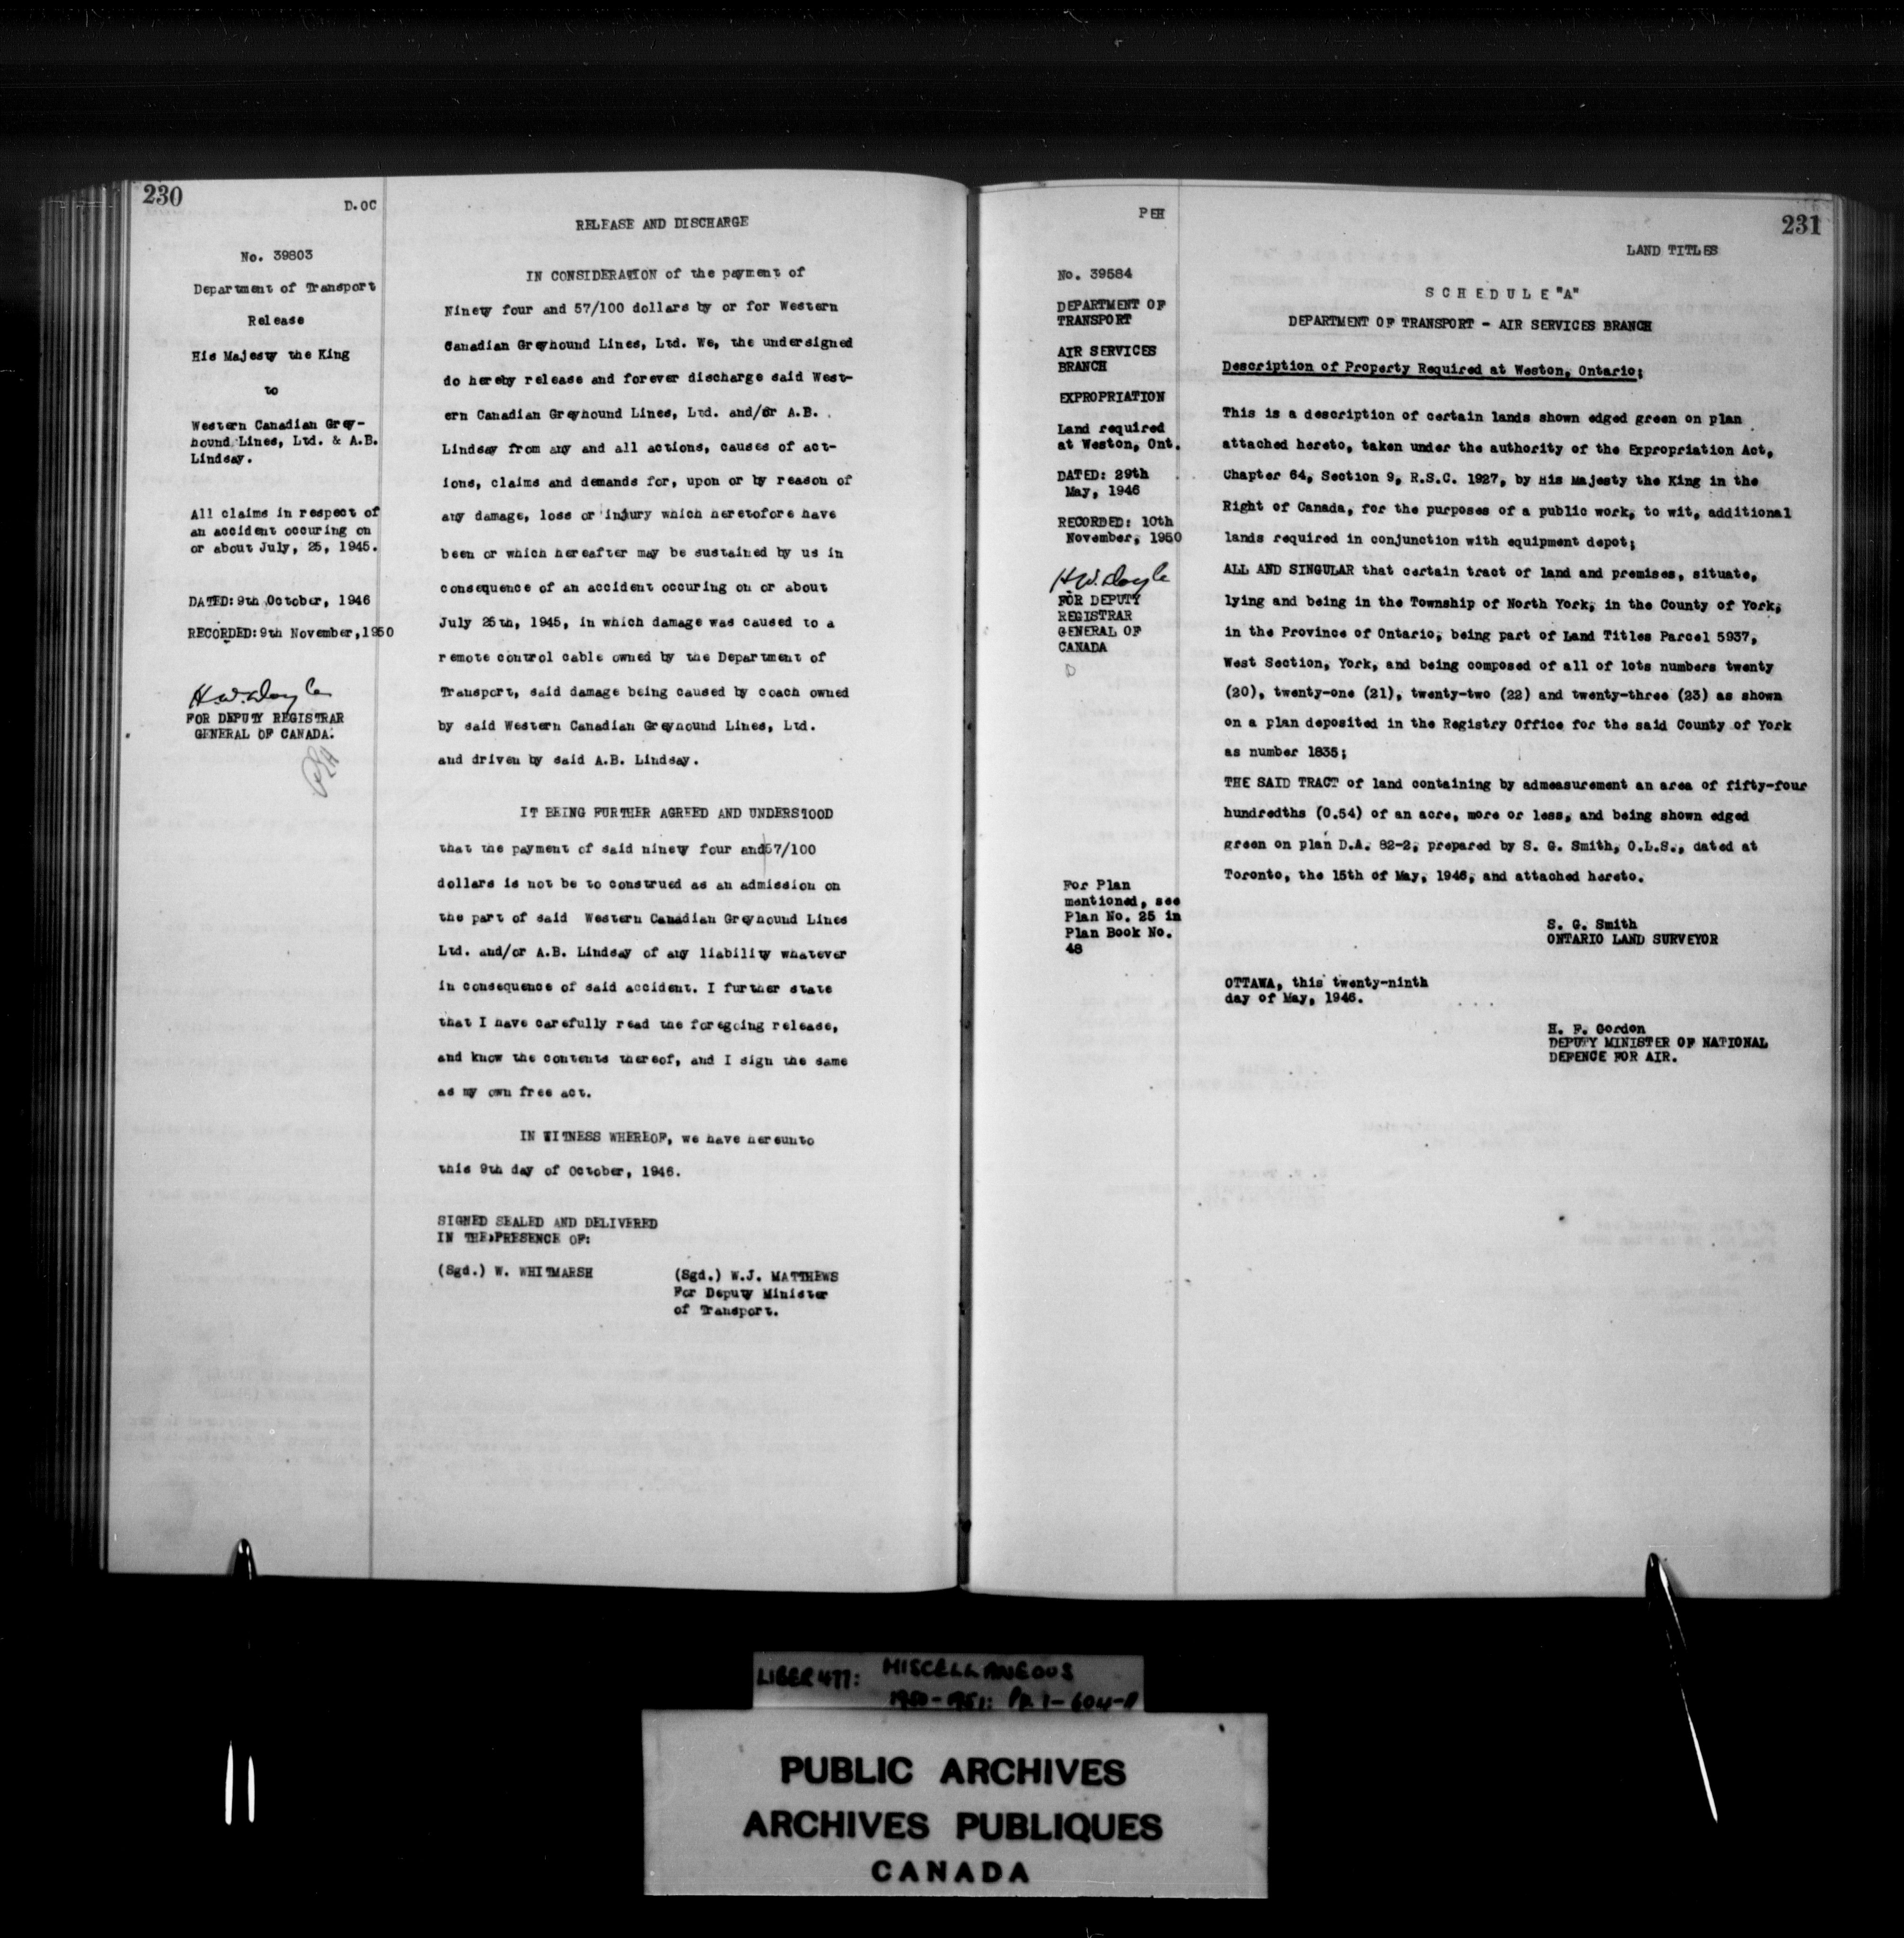 230
D.OC
No. 39803
Department of Transport
Release
His Majesty the King
to
Western Canadian Grey-
hound Lines, Ltd. & A.B.
Lindsay.
All claims in respect of
an accident occuring on
or about July, 25, 1945.
DATED: 9th October, 1946
RECORDED: 9th November, 1950
H.W. Doyle
FOR DEPUTY REGISTRAR
GENERAL OF CANADA.
RELEASE AND DISCHARGE
IN CONSIDERATION of the payment of
Ninety four and 57/100 dollars by or for Western
Canadian Greyhound Lines, Ltd. We, the undersigned
do hereby release and forever discharge said West-
ern Canadian Greyhound Lines, Ltd. and/or A.B.
Lindsay from any and all actions, causes of act-
ions, claims and demands for, upon or by reason of
any damage, loss or injury which heretofore have
been or which hereafter may be sustained by us in
consequence of an accident occuring on or about
July 25th, 1945, in which damage was caused to a
remote control cable owned by the Department of
Transport, said damage being caused by coach owned
by said Western Canadian Greyhound Lines, Ltd.
and driven by said A.B. Lindsay.
IT BEING FURTHER AGREED AND UNDERSTOOD
that the payment of said ninety four and 57/100
dollars is not be to construed as an admission on
the part of said Western Canadian Greyhound Lines
Ltd. and/or A.B. Lindsay of any liability whatever
in consequence of said accident. I further state
that I have carefully read the foregoing release,
and know the contents thereof, and I sign the same
as my own free act.
IN WITNESS WHEREOF, we have hereunto
this 9th day of October, 1946.
SIGNED SEALED AND DELIVERED
IN THE PRESENCE OF:
(Sgd.) W. WHITMARSH
(Sgd.) W.J. MATTHEWS
For Deputy Minister
of Transport.
PEH
231
LAND TITLES
No. 39584
DEPARTMENT OF
TRANSPORT
AIR SERVICES
BRANCH
EXPROPRIATION
Land required
at Weston, Ont.
DATED: 29th
May, 1946
RECORDED: 10th
November, 1950
H.W. Doyle
FOR DEPUTY
REGISTRAR
GENERAL OF
CANADA
For Plan
mentioned, see
Plan No. 25 in
Plan Book No.
48
SCHEDULE "A"
DEPARTMENT OF TRANSPORT - AIR SERVICES BRANCH
Description of Property Required at Weston, Ontario;
This is a description of certain lands shown edged green on plan
attached hereto, taken under the authority of the Expropriation Act,
Chapter 64, Section 9, R.S.C. 1927, by His Majesty the King in the
Right of Canada, for the purposes of a public work, to wit, additional
lands required in conjunction with equipment depot;
ALL AND SINGULAR that certain tract of land and premises, situate,
lying and being in the Township of North York, in the County of York,
in the Province of Ontario, being part of Land Titles Parcel 5937,
West Section, York, and being composed of all of lots numbers twenty
(20), twenty-one (21), twenty-two (22) and twenty-three (23) as shown
on a plan deposited in the Registry Office for the said County of York
as number 1835;
THE SAID TRACT of land containing by admeasurement an area of fifty-four
hundredths (0.54) of an acre, more or less, and being shown edged
green on plan D.A. 82-2, prepared by S. G. Smith, O.L.S., dated at
Toronto, the 15th of May, 1946, and attached hereto.
S. G. Smith
ONTARIO LAND SURVEYOR
OTTAWA, this twenty-ninth
day of May, 1946.
H. F. Gordon
DEPUTY MINISTER OF NATIONAL
DEFENCE FOR AIR.
LIBER 477: MISCELLANEOUS
1950-1951: Pp. 1-604-
PUBLIC ARCHIVES
ARCHIVES PUBLIQUES
CANADA